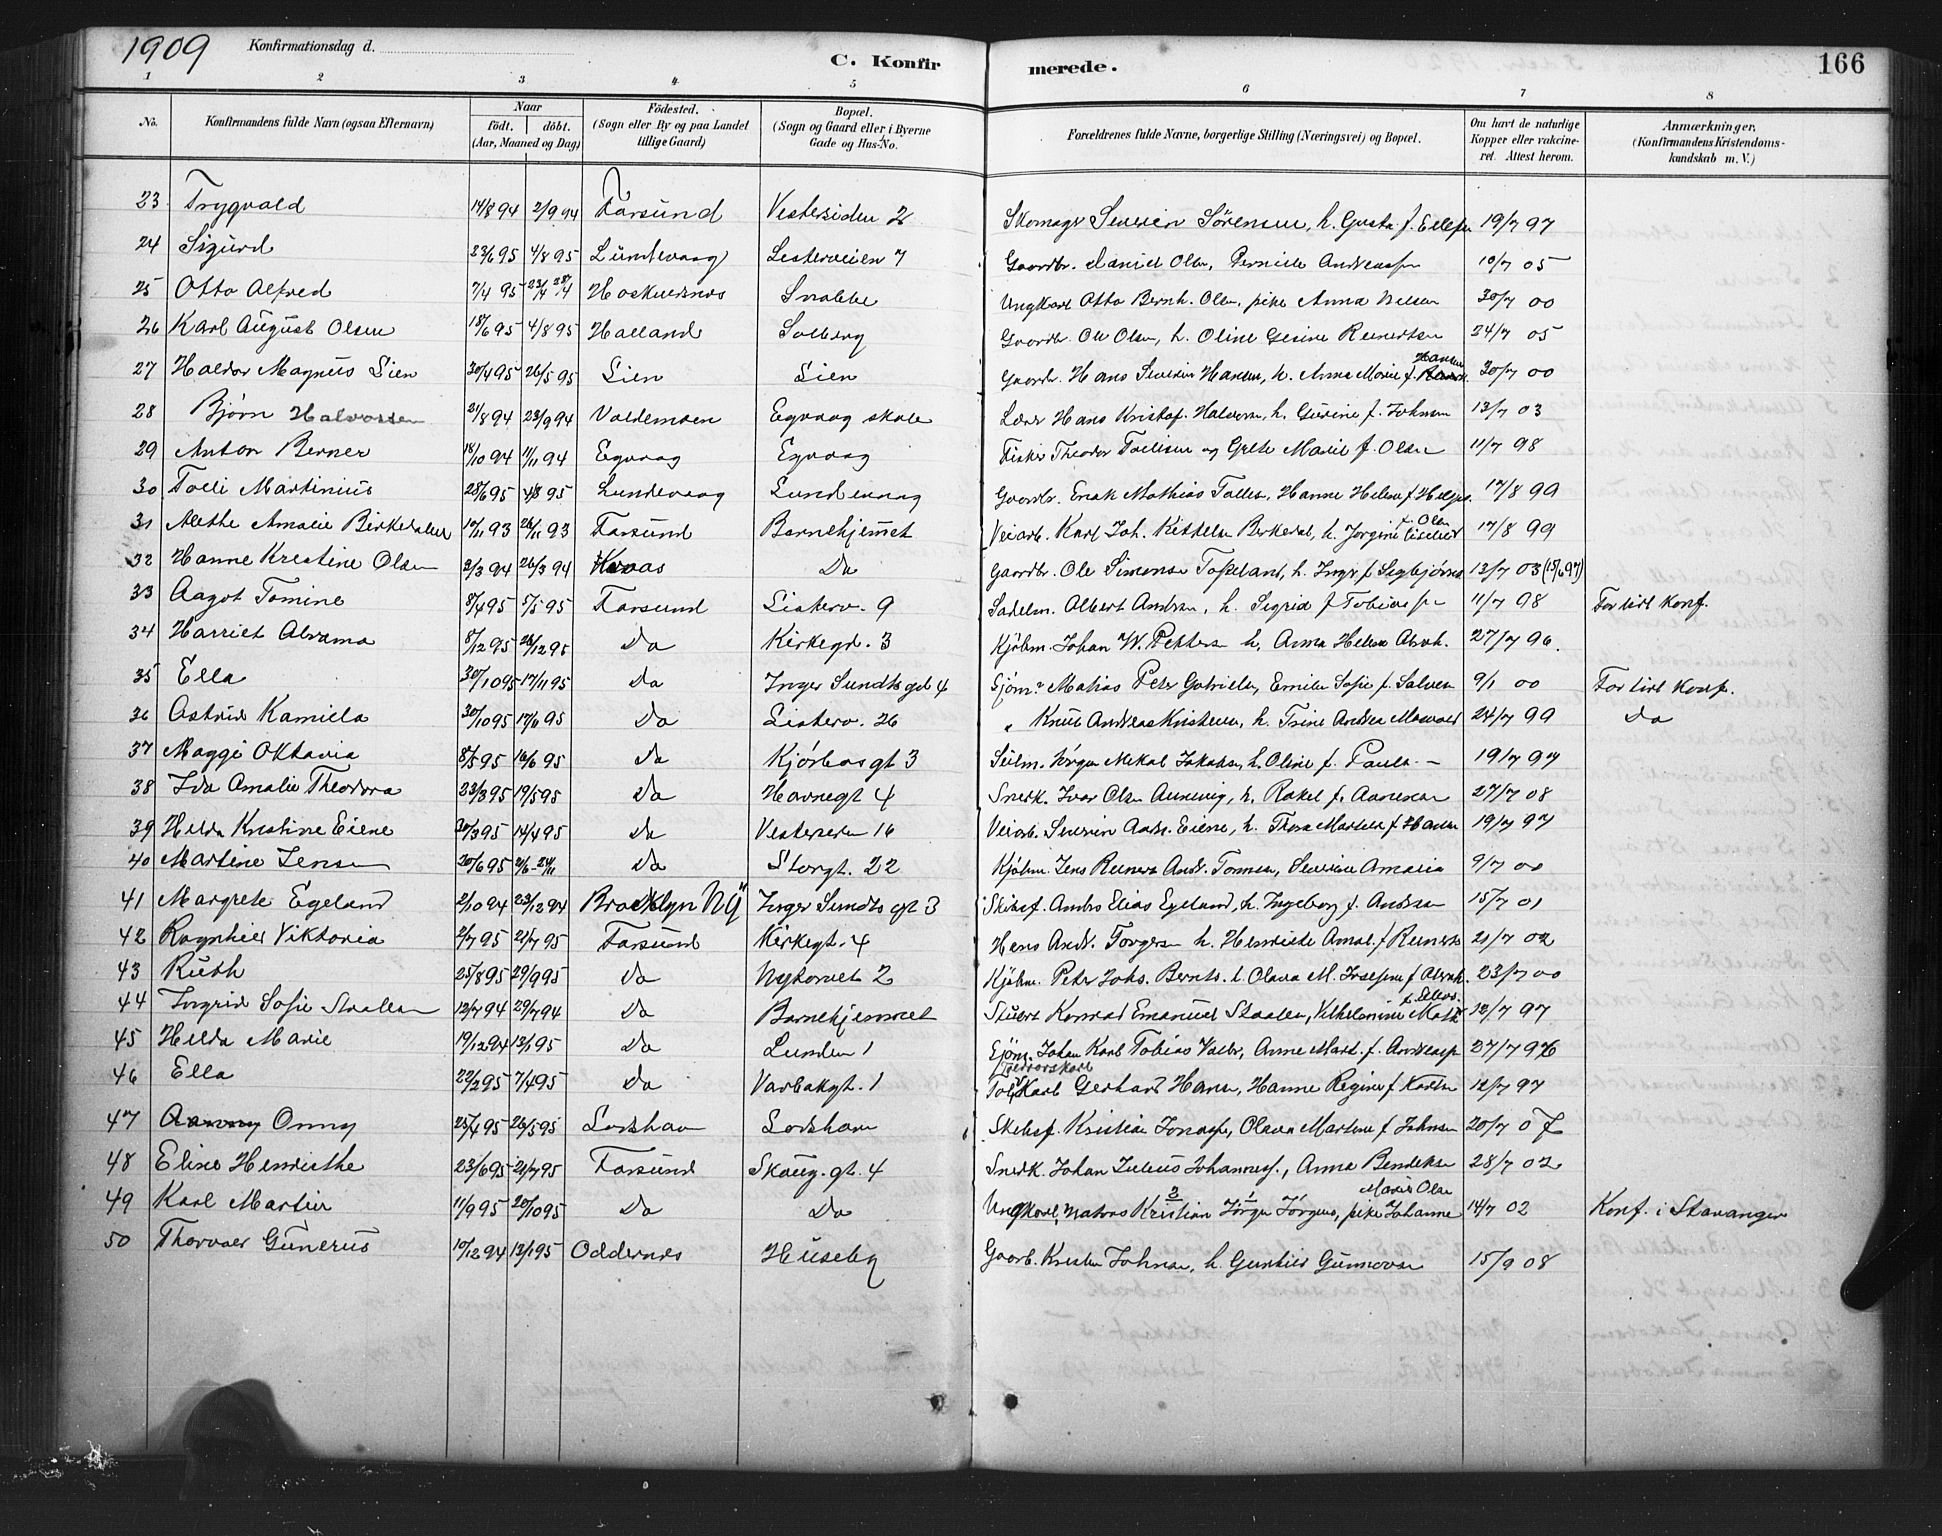 1909 Konfirmationsdag d. C. Konfirmerede. 166
1 2 3 4 5 6 7 8
No. Konfirmandens fulde Navn (ogsaa Efternavn) Naar født. døbt. (Aar, Maaned og Dag) Fødested. (Sogn eller By og paa Landet tillige Gaard) Bopæl. (Sogn og Gaard eller i Byerne Gade og Hus-No. Forældrenes fulde Navne, borgerlige Stilling (Næringsvei) og Bopæl. Om havt de naturlige Kopper eller vakcineret. Attest herom. Anmærkninger. (Konfirmandens Kristendomskundskab m. V.)
23 Trygvald 14/8 94 2/9 94 Farsund Vestersiden 2 Skomagr Severin Sörensen, h. Gusta f. 19/7 97
24 Sigurd 23/6 95 4/8 95 Lundevaag Listerveien 7 Gaardbr. Daniel Olsen, Pernille Andreasen 10/7 05
25 Otto Alfred 7/4 95 Snabbe Ungkarl Otto Bernh. Olsen, pike Anna Nilsen 30/7 00
26 Karl August Olsen 18/6 95 4/8 95 Halland Solberg Gaardbr. Ole Olsen, h. Oline Gesine Reinertsen 24/7 05
27 Haldor Magnus Lien 30/4 95 26/5 95 Lien Lien Gaardbr. Hans Severin Hansen, h. Anna Marie f. Hansen 30/7 00
28 Bjørn Halvorsen 21/8 94 23/9 94 Valdemoen Egvaag skole Lærer Hans Kristof. Halvorsen, h. Gurine f. Johnsen 13/7 03
29 Anton Berner 18/10 94 11/11 94 Egvaag Egvaag Fisker Theodor Tollisen og Grete Marie f. Olsen 11/7 98
30 Tolli Martinius 28/6 95 4/8 95 Lundevaag Lundevaag Gaardbr. Enok Mathias Tallen, Hanne Helene f. Helges. 17/8 99
31 Alethe Amalie Birkedalen 10/11 93 26/11 93 Farsund Barnehjemmet Veiarb. Karl Joh. Kittelsen Birkedal, h. Jørgine f. Olsen 17/8 99
32 Hanne Kristine Olsen 2/3 94 26/3 94 Da Gaardbr. Ole Simonsen h. Inger f. Sigbjørns. 13/7 03 (15/6 97)
33 Aagot Tomine 8/4 95 5/5 95 Farsund Listerv. 9 Sadelm. Albert Andrsen, h. Sigrid f. Tobiassen 11/7 98 Før tidl. konf.
34 Harriet Abrama 8/12 95 26/12 95 Da Kirkegd. 3 Kjøbm. Johan W. Petters h. Anna Helene Abrah. 27/7 96.
35 Ella 30/10 95 17/11 95 Da Inger Sundts gd 4 Sjøm. Matias Peter Gabrielsen, Emilie Sofie f. Salvesen 9/1 00 Før tidl. konf.
36 Astrid Kamilla 30/10 95 Da Listerv. 26 " Knut Andreas Kristensen, h. Trine Andrea 24/7 99 Da
37 Maggi Oktavia 8/5 95 16/6 95 Da Kjørbos gt 3 Seilm. Jørgen Mekal Jakobsen, h. Oline f. Pauls. – 19/7 97
38 Ida Amalie Theodora 23/3 95 19/5 95 Da Havnegt 4 Snedk. Ivar Olsen h. Rakel f. Aanensen 27/7 08
39 Hilda Kristine Eiene 30/3 95 14/4 95 Da Vestersiden 16 Veiarb. Severin Andr. Eiene, h. Thora Martilla f. Hansen 19/7 97
40 Martine Jensen 20/6 95 Da Storgt. 22 Kjøbm. Jens Reinert Andr. Tonnesen, Severine Amalia 9/7 00
41 Margrete Egeland 2/10 94 23/12 94 Brooklyn NY Inger Sundts gt 3 Skibsf. Andrs Elias Egeland, h. Ingeborg f. Andrsen 15/7 01
42 Ragnhild Viktoria 2/7 95 21/7 95 Farsund Kirkegt. 4 Hans Andr. Torgersen h. Henriette Amal. f. Reinerts 21/7 02
43 Ruth 25/8 95 29/9 95 Da Nytorvet 2 Kjøbm. Peter Johs. Bernts. h. Olava M. Josefine f. Abrah. 23/7 00
44 Ingrid Sofie Staalesen 12/7 94 29/7 94 Da Barnehjemmet Stuert Konrad Emanuel Staalesen, Vilhelmine 12/7 97
45 Hilda Marie 19/12 94 13/1 95 Da Lunden 1 Sjøm. Johan Karl Tobias Valbr, Anne Mart. f. Andreassen 27/7 96
46 Ella 22/2 95 7/4 95 Da Varbakgt. 1 Karl Gerhard Hansen, Hanne Regine f. Karlsen 12/7 97
47 Onny 25/4 95 26/5 95 Lodshavn Lodshavn Skibsf. Kristian Jonassen, Olava Martine f. Johnsen 20/7 07
48 Eline Henriethe 23/6 95 21/7 95 Farsund Skoug. gt. 4 Snedk. Johan Julius Johannes., Anna Bendiksen 28/7 02
49 Karl Martin 11/9 95 20/10 95 Da Da Ungkarl, Matias Kristian Jörgen Jörgens, pike Johanne Marie Olsen 14/7 02 Konf. i Stavanger
50 Thorvald Gunerius 10/12 94 13/1 95 Oddernes Huseby Gaardb. Kristen Johnsen, h. Guneovsen 15/9 08